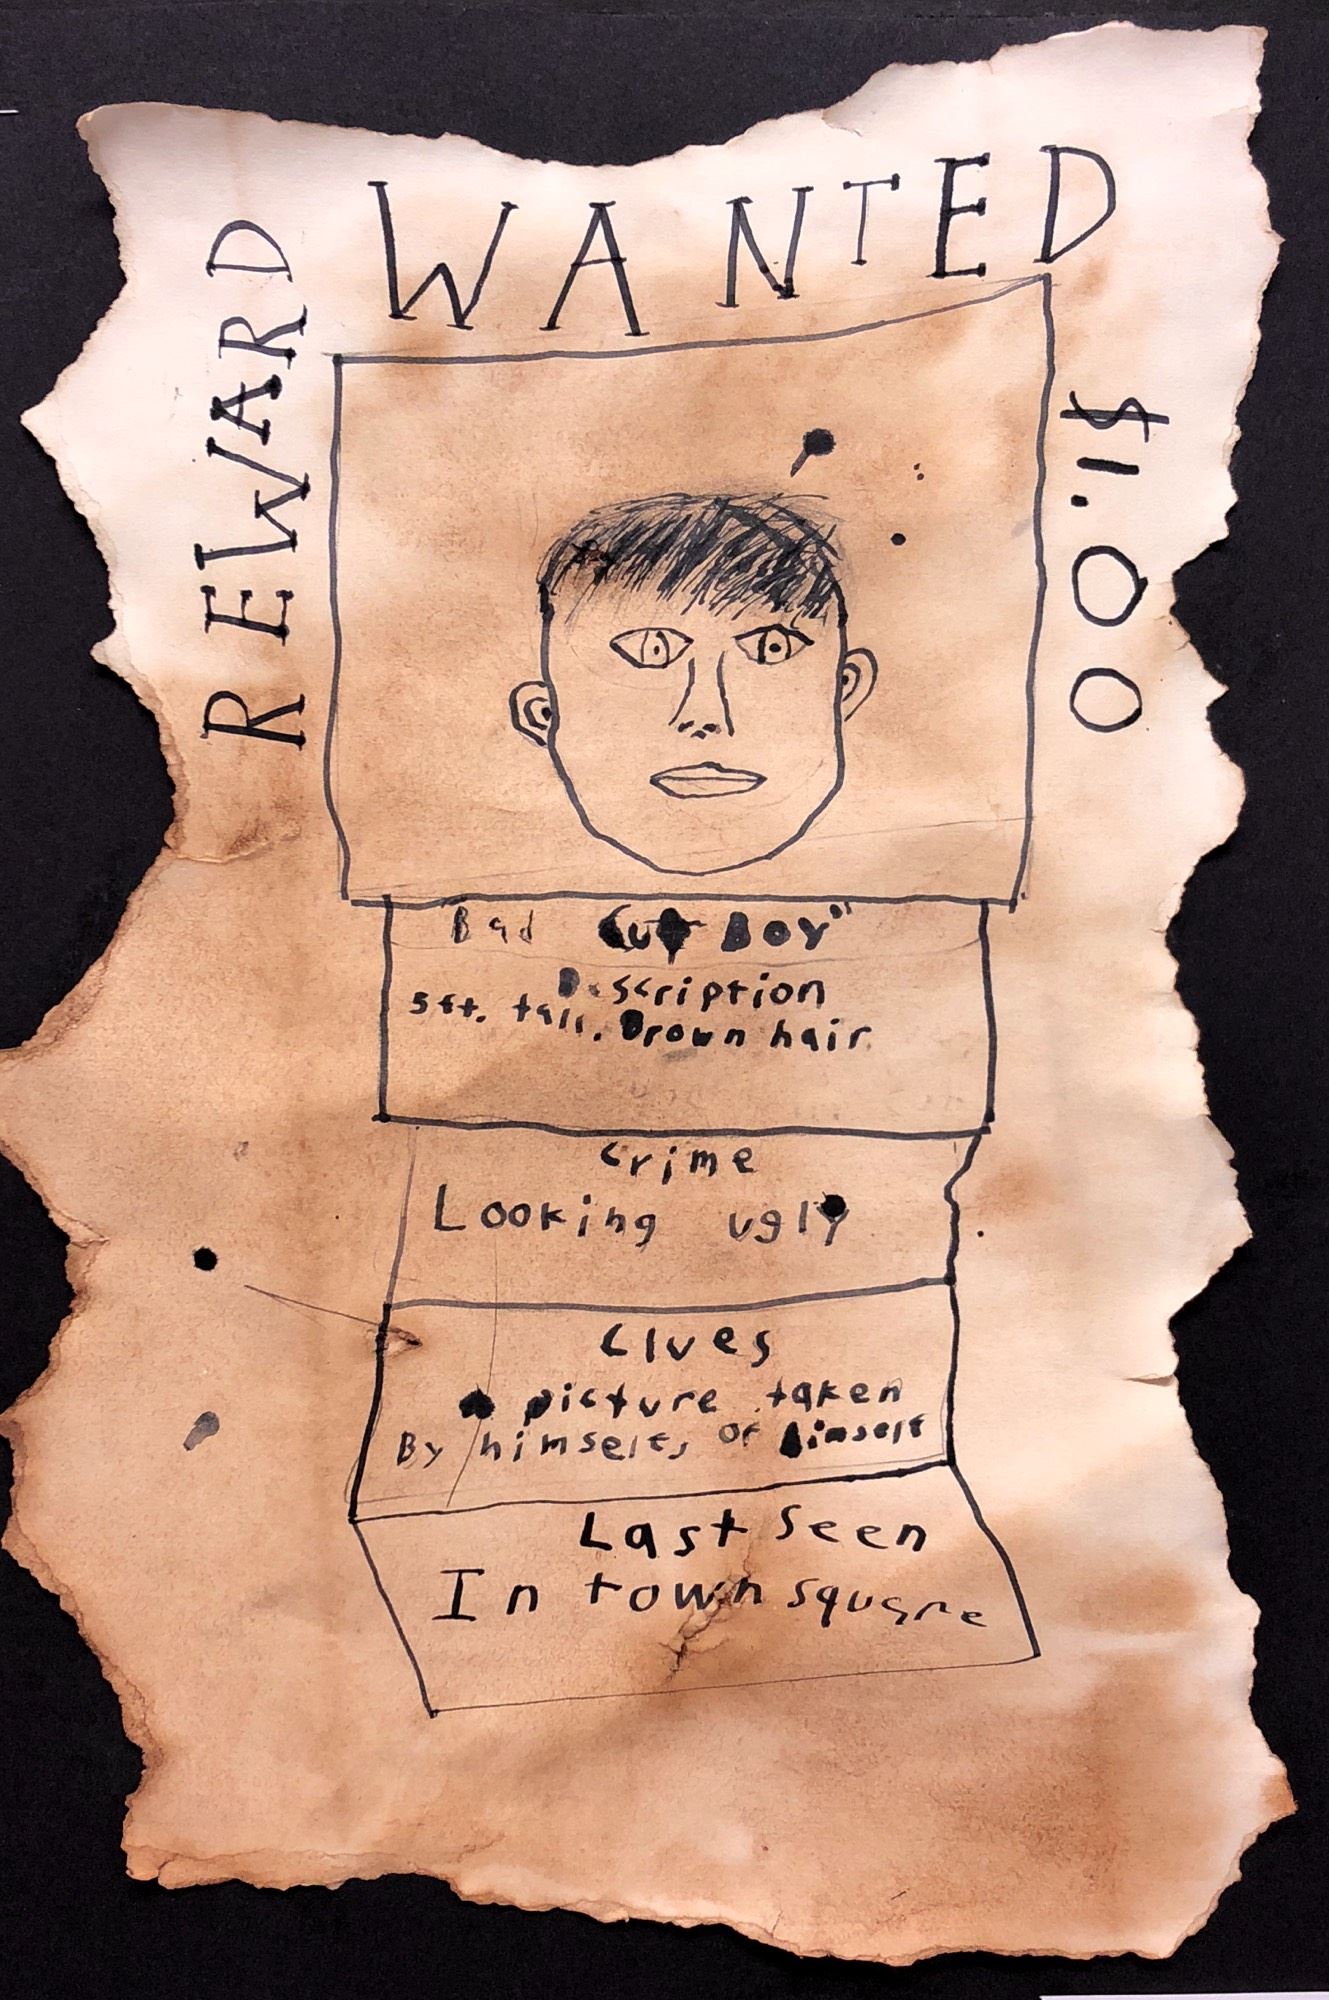 WANTED
REWARD
$1.00
"Bad Cut Boy"
Description
5ft. tall. Brown hair.
Crime
Looking ugly
Clues
A picture taken
By himself, of himself
Last Seen
In town square